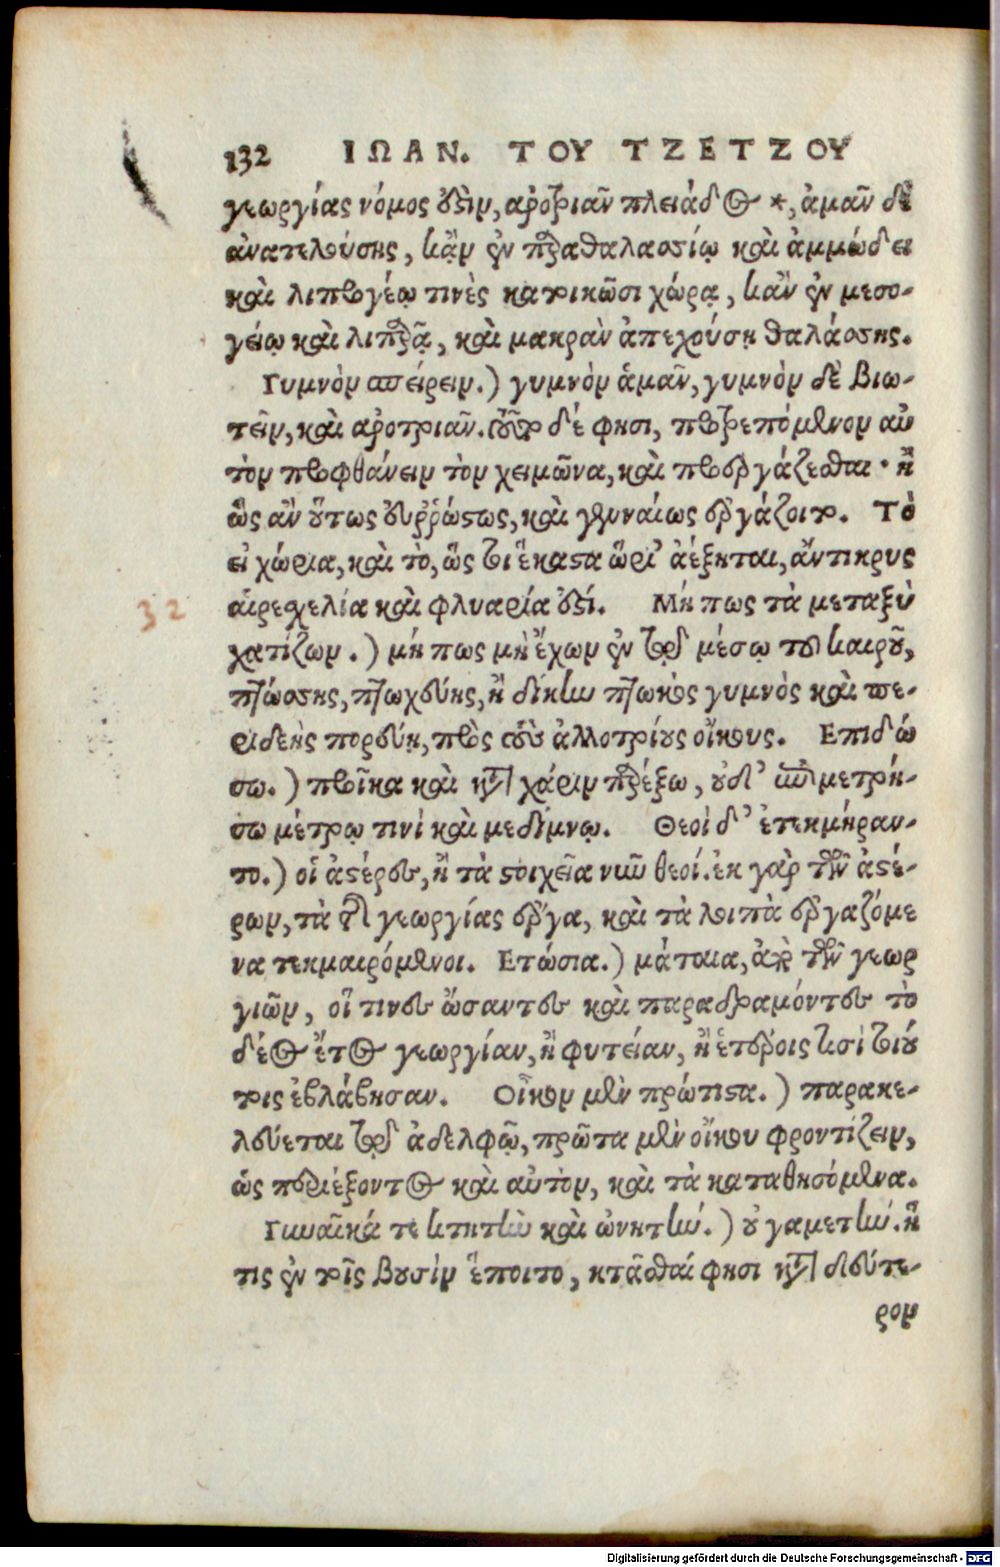 132 ΙΩΑΝ. ΤΟΥ ΤΖΕΤΖΟΥ
γεωργίας νόμος ὅστιν, ἀροτριᾶν πλειάδος *, ἀμᾶν δὲ
ἀνατελούσης, κἂν ἐν παραθαλασσίῳ καὶ ἀμμώδει
καὶ λιπτογέῳ τινὲς κατοικῶσι χώρᾳ, κἂν ἐν μεσο-
γείῳ καὶ λιπαρᾷ, καὶ μακρὰν ἀπεχούσῃ θαλάσσης.
Γυμνὸν σπείρειν.) γυμνὸν ἀμᾶν, γυμνὸν δὲ βιω-
τεῖν, καὶ ἀροτριᾶν. τοῦτο δέ φησι, προτρεπόμενον αὐ
τὸν προφθάνειν τὸν χειμῶνα, καὶ προεργάζεσθαι· ἢ
ὡς ἂν οὕτως εὐρρώστως, καὶ γενναίως ἐργάζοιτο. Τὸ
εἰ χώρια, καὶ τὸ, ὥς τοι ἕκαστα ὥρι' ἀέξηται, ἄντικρυς
αἰρεσχελία καὶ φλυαρία ἐστί. Μή πως τὰ μεταξὺ
32
χατίζων.) μή πως μὴ ἔχων ἐν τῷ μέσῳ τοῦ καιροῦ,
πτώσσης, πτωχεύης, ἢ δίκην πτωκὸς γυμνὸς καὶ πε-
ριδεὴς πορεύῃ, πρὸς τοὺς ἀλλοτρίους οἴκους. Επιδώ
σω.) προῖκα καὶ κατὰ χάριν παρέξω, οὐδ' ἀντιμετρή-
σω μέτρῳ τινὶ καὶ μεδίμνῳ. Θεοὶ δ' ἐτεκμήραν-
το.) οἱ ἀστέρες, ἢ τὰ στοιχεῖα νῦν θεοί. ἐκ γὰρ τῶν ἀστέ-
ρων, τὰ τῆς γεωργίας ἔργα, καὶ τὰ λοιπὰ ἐργαζόμε
να τεκμαιρόμενοι. Ετώσια.) μάταια, ἀπὸ τῶν γεωρ
γιῶν, οἵ τινες ὤσαντες καὶ παραδραμόντες τὸ
δέον ἔτος γεωργίαν, ἢ φυτείαν, ἢ ἑτέροις τισὶ τοιού
τοις ἐβλάβησαν. Οἶκον μὲν πρώτιστα.) παρακε-
λεύεται τῷ ἀδελφῷ, πρῶτα μὲν οἴκου φροντίζειν,
ὡς περιέξοντος καὶ αὐτὸν, καὶ τὰ καταθησόμενα.
Γυναῖκά τε κτητὴν καὶ ὠνητήν.) οὐ γαμετήν. ἥ
τις ἐν τοῖς βουσὶν ἕποιτο, κτᾶσθαί φησι κατὰ δεύτε-
ρον
Digitalisierung gefördert durch die Deutsche Forschungsgemeinschaft - DFG